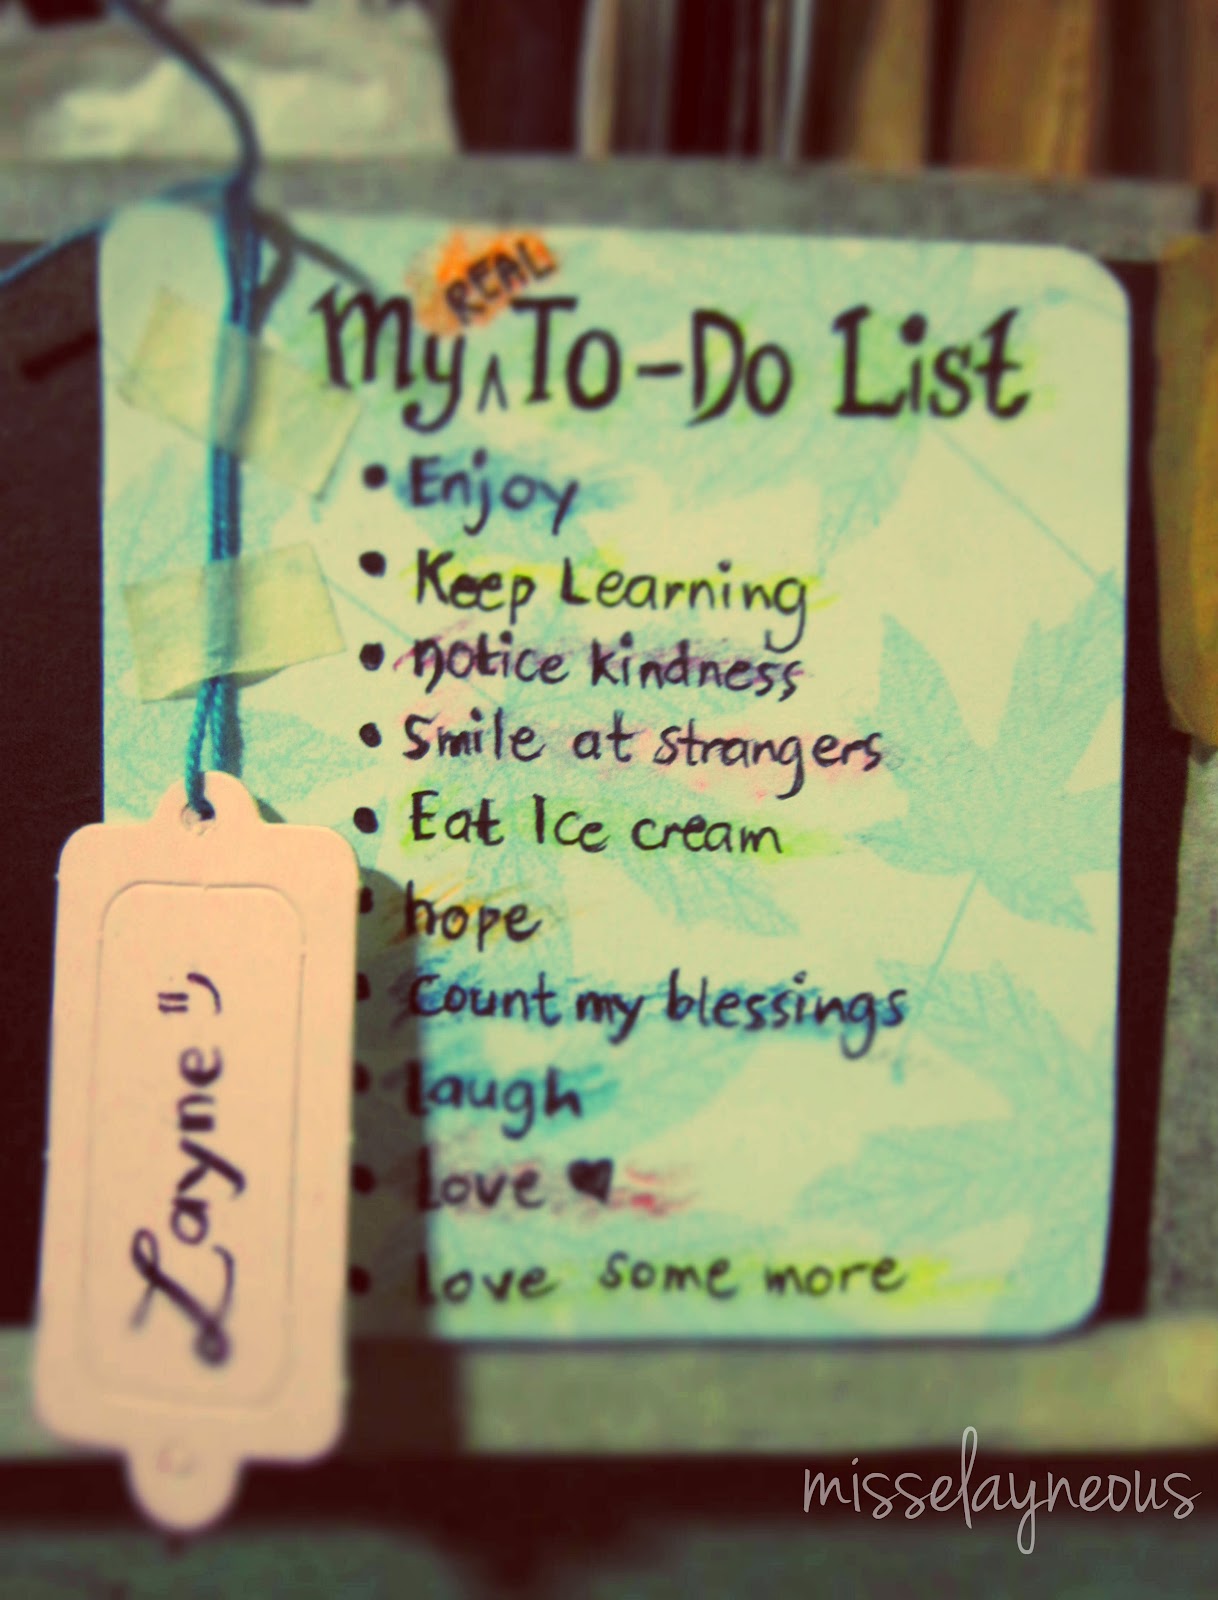 REAL
My ^ To-Do List
• Enjoy
• Keep Learning
• notice kindness
• Smile at strangers
• Eat Ice cream
• hope
• Count my blessings
• laugh
• Love ♥
• Love some more
Layne ")
misselayneous